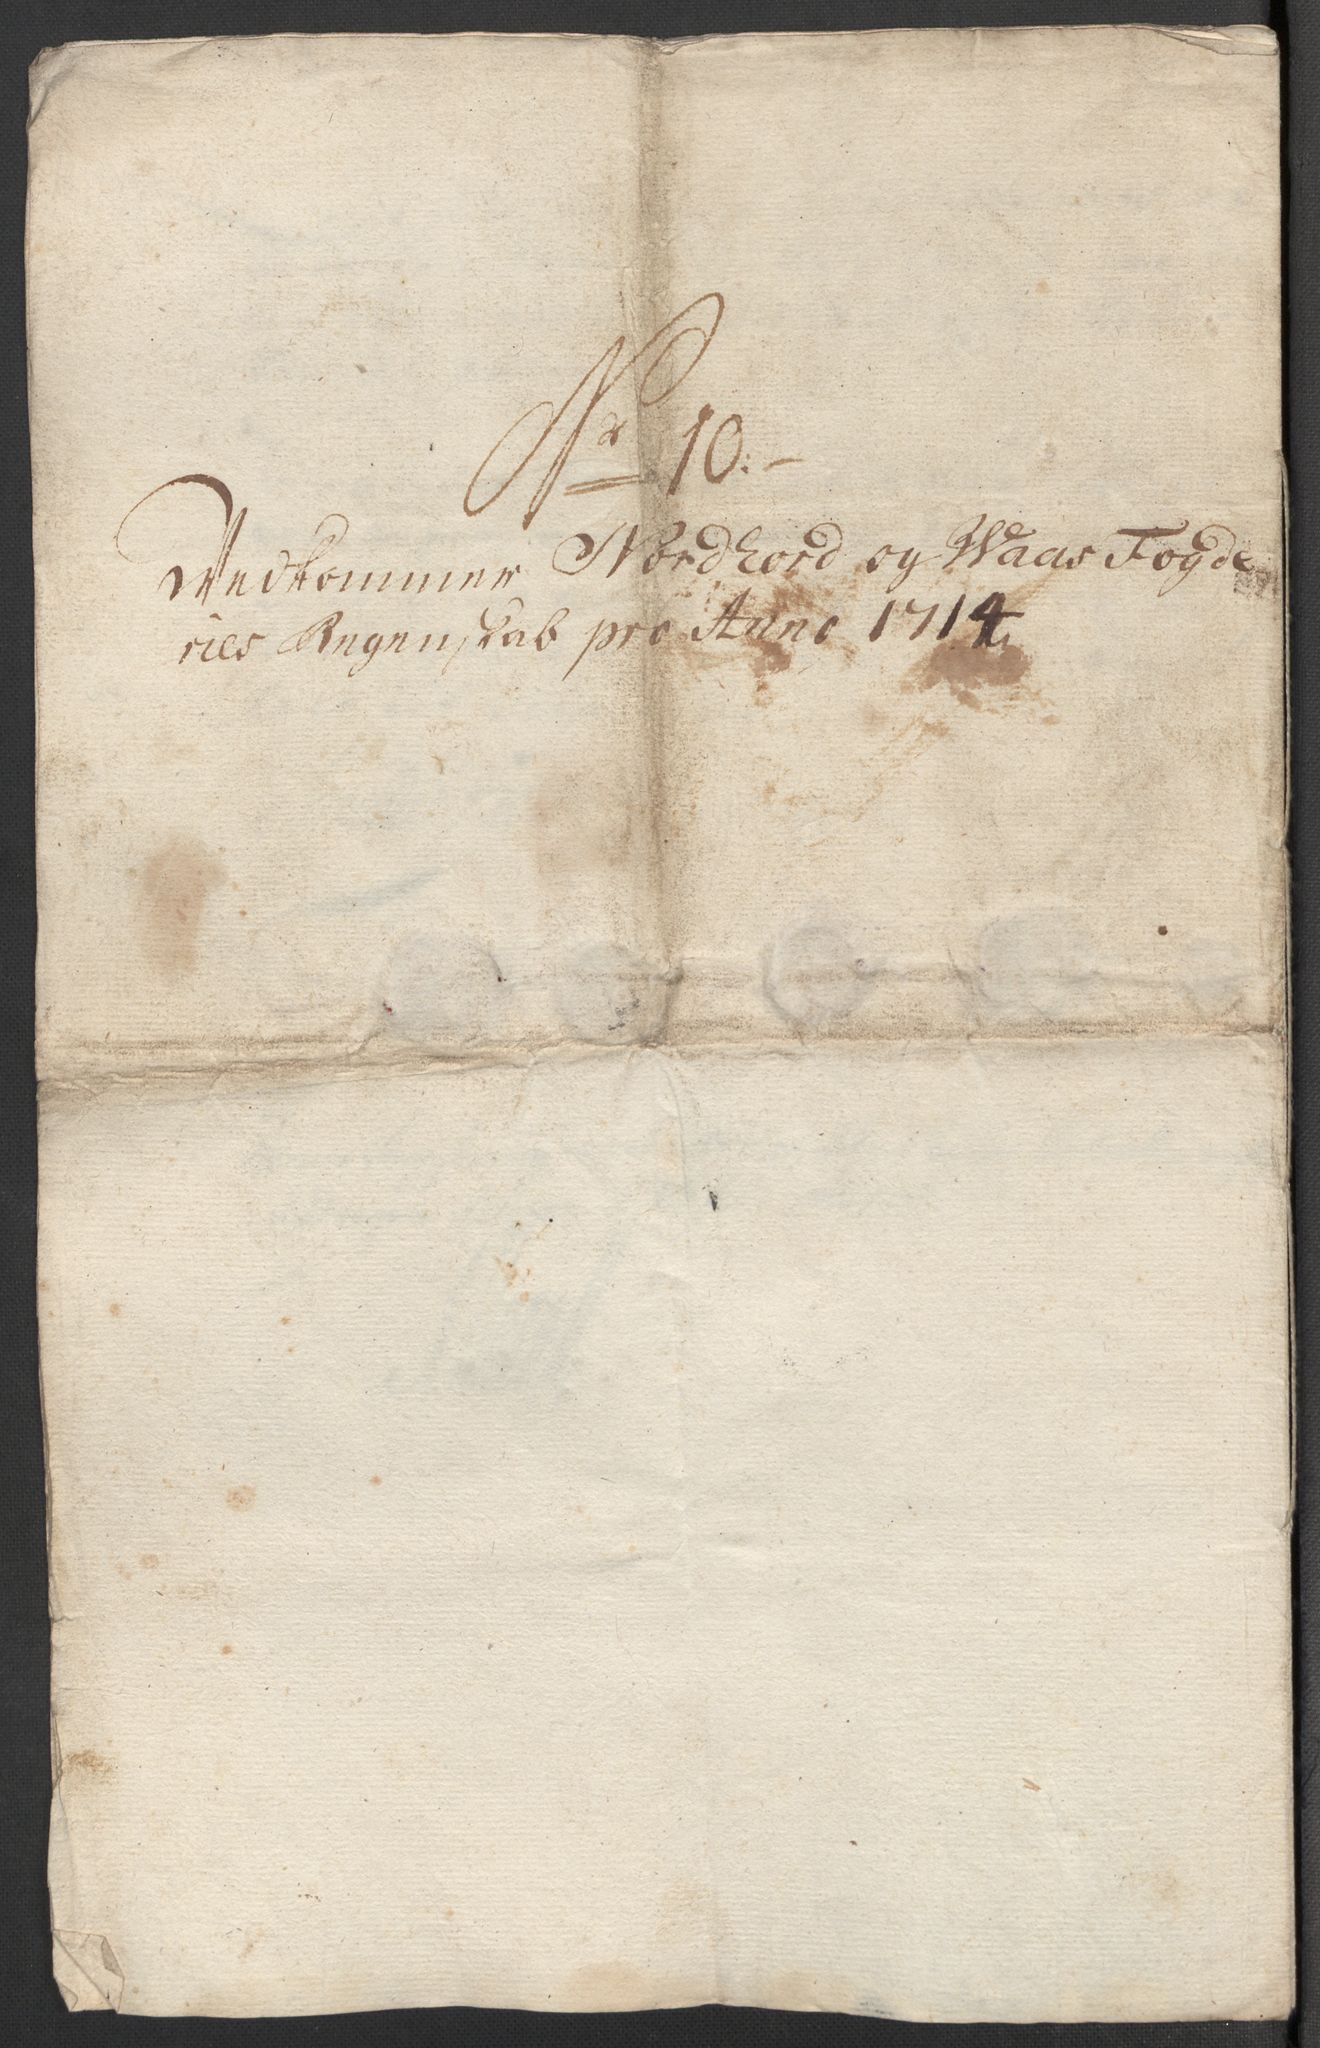 Nr 10:
Vedkommer Nordhord og Waas Fogde
ries Regenskab pro Anno 1714